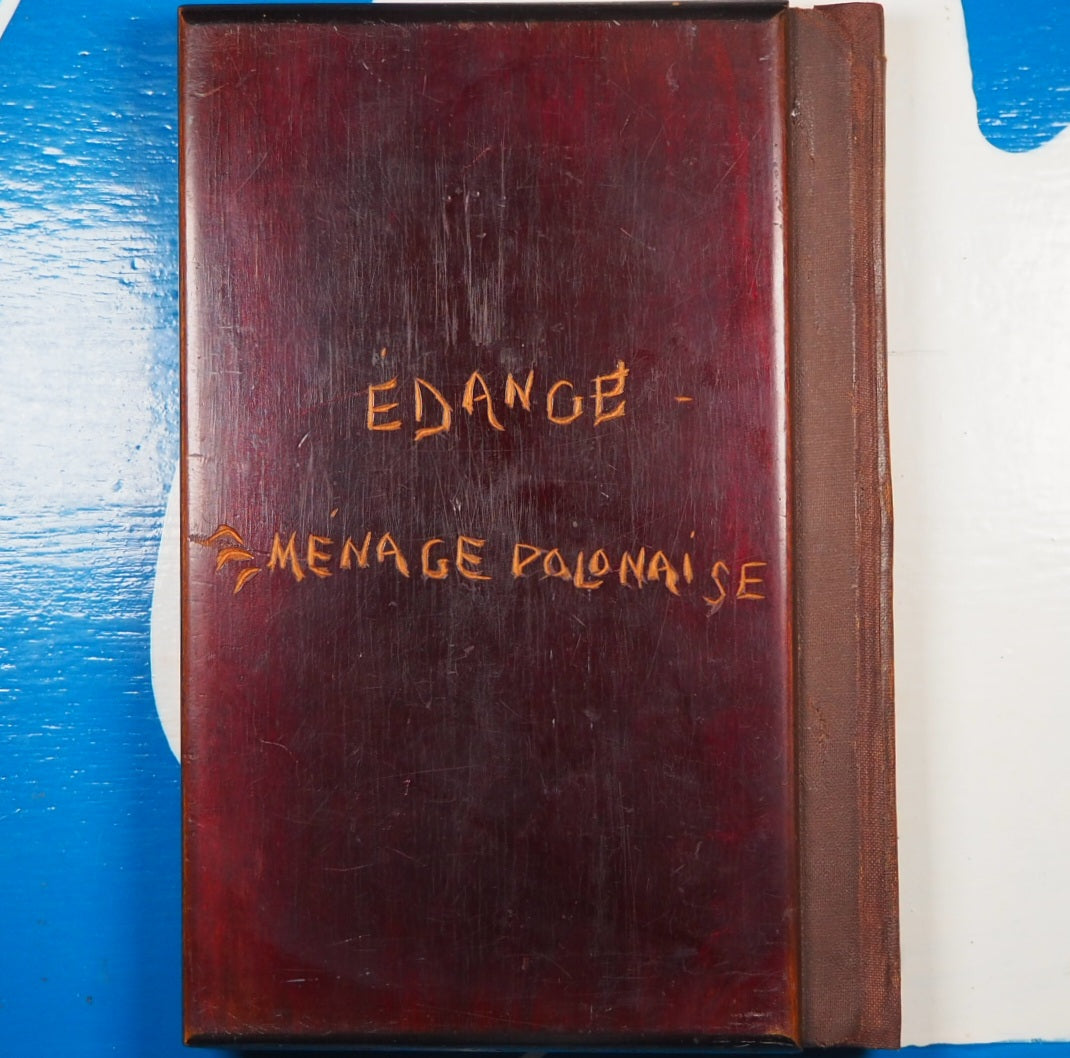 ÉDANGE -
MÉNAGE DOLONAISE